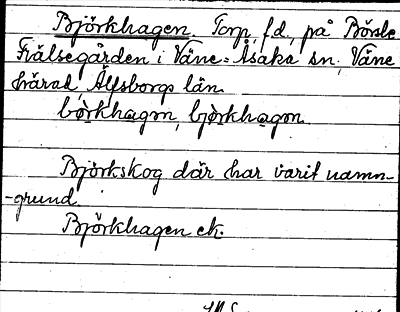 Björkhagen. Torp, f.d., på Börsle
Frälsegården i Väne-Åsaka sn, Väne
härad, Älfsborgs län.
bø̀rkhagɷn, bjø̀rkhagɷn
Björkskog där har varit namn-
-grund
Björkhagen ek.